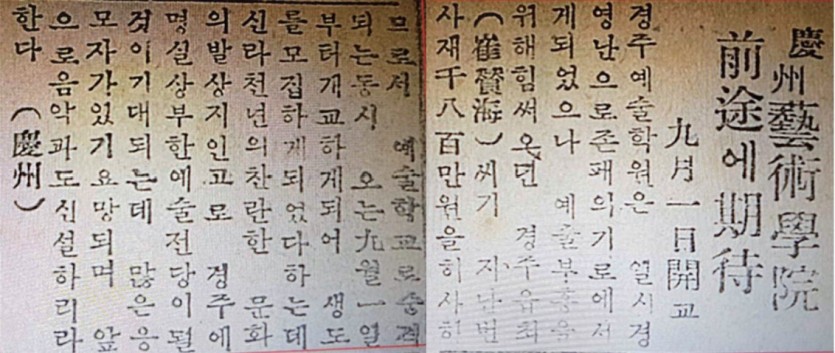 慶州藝術學院
前途에期待
九月一日開교
경주예술학원은 설시경
영난으로존패의기로에서
게되었으나 예술부흥을
위해힘써온던 경주유최
(崔贊海)씨기 자난번
사재千八百만원을히사히
므로서 예술학교로승격
되는동시 오는九월一일
부터개교하게되어 생도
를모집하게되었다하는데
신라천년의찬란한 문화
의발상지인고로 경주에
명실상부한예술전당이될
것이기대되는데 많은응
모자가있기요망되며 앞
으로음악과도신설하리라
한다 (慶州)